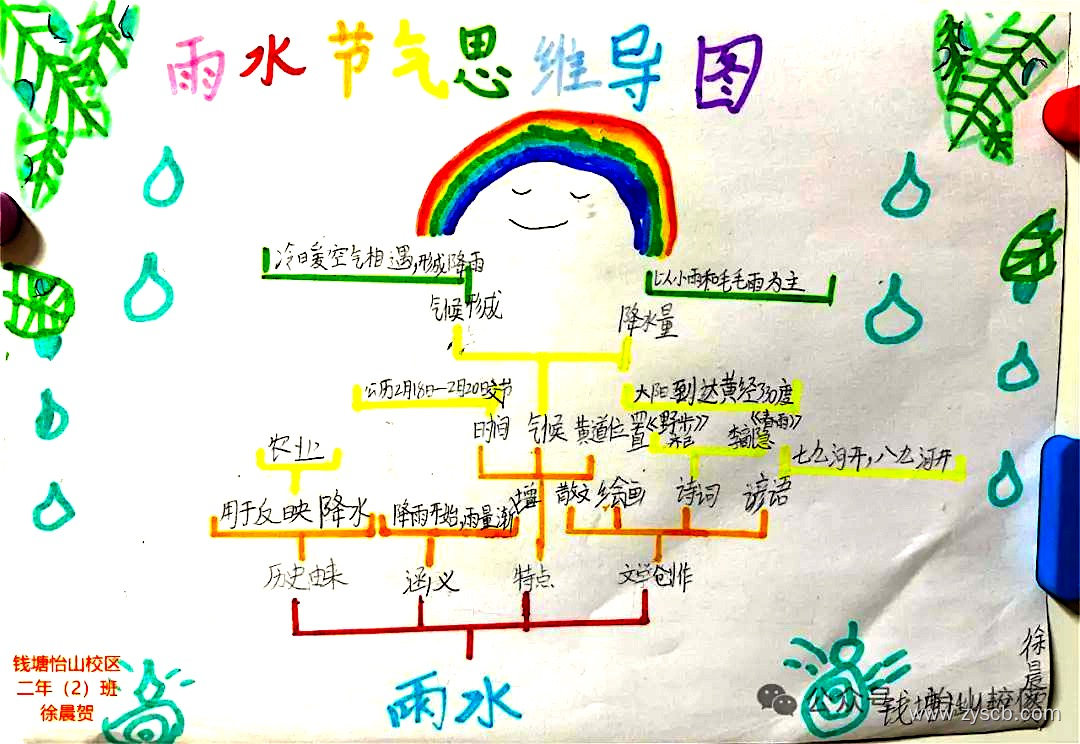 雨水节气思维导图
冷暖空气相遇,形成降雨
以小雨和毛毛雨为主
气候形成
降水量
公历2月18日—2月20日交节
太阳到达黄经330度
时间
气候
黄道位置
《野步》
《春雨》
李商隐
农业
七九河开,八九
用于反映降水
降雨开始,雨量渐增
散文
绘画
诗词
谚语
历史由来
涵义
特点
文学创作
雨水
钱塘怡山校区
二年（2）班
徐晨贺
徐晨贺
公众号
钱塘怡山校
www.zyscb.com